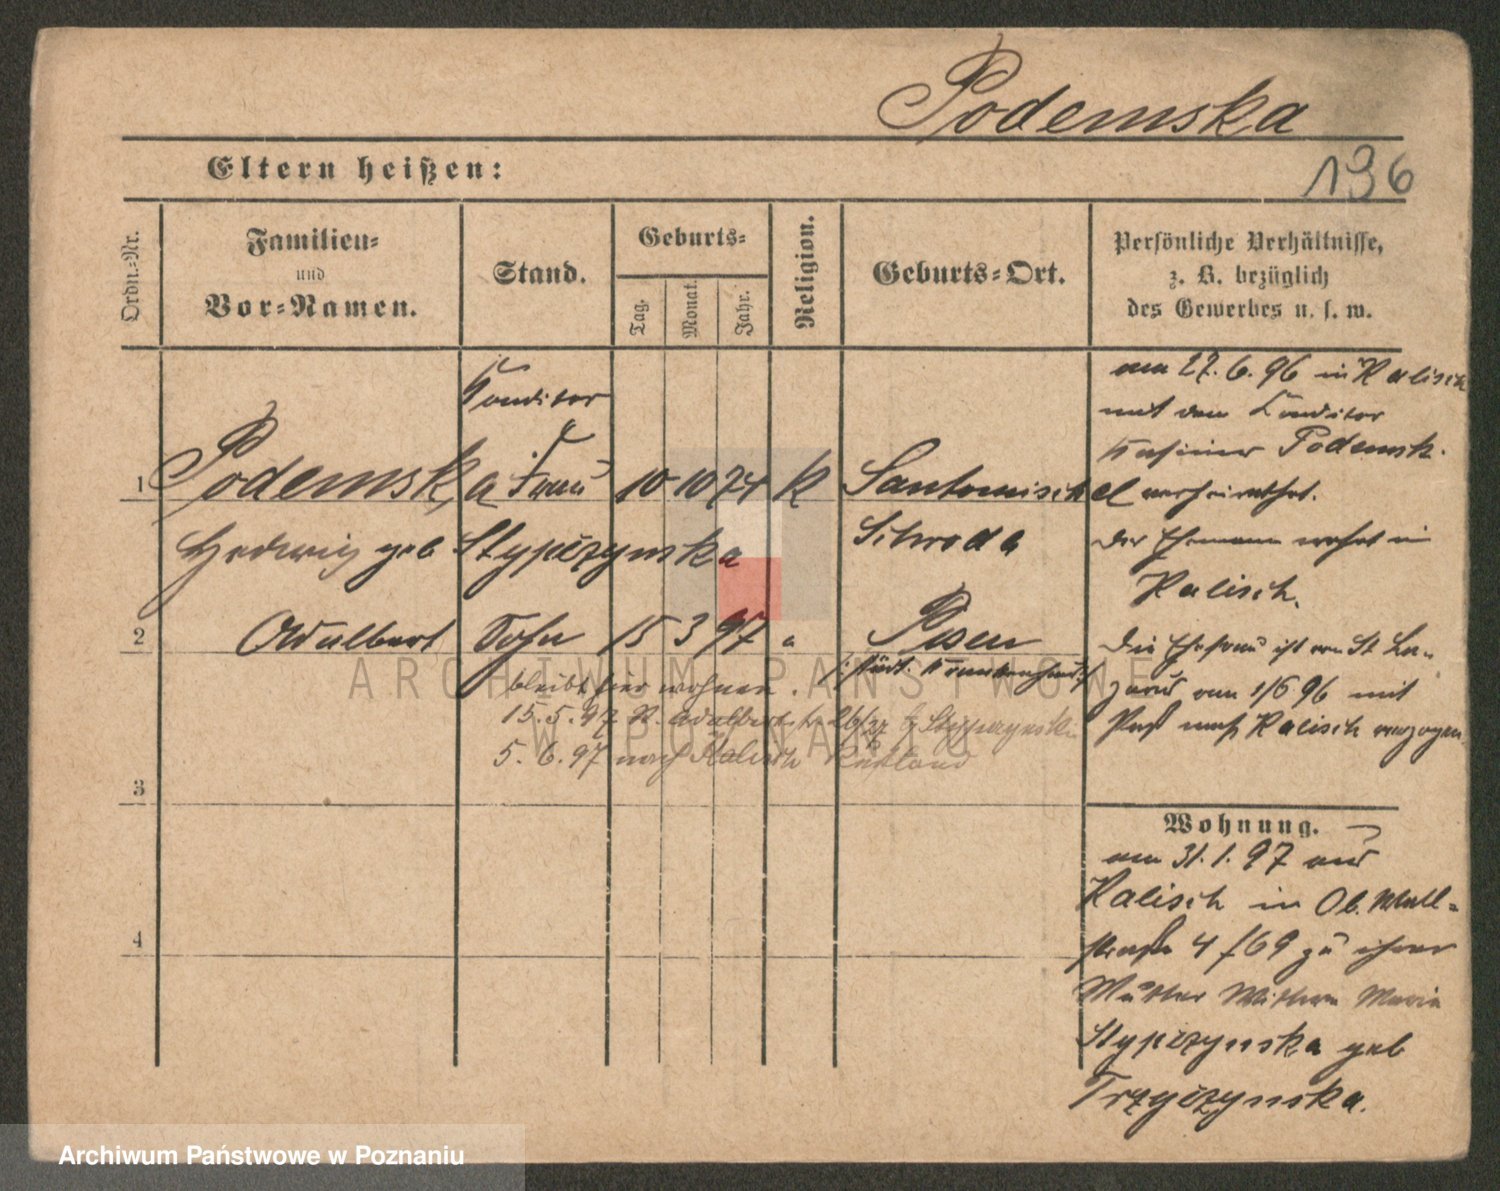 Podemska
136
Eltern heißen:
Ordn.-Nr.
Familien-
und
Vor-Namen.
Stand.
Geburts-
Tag.
Monat.
Jahr.
Religion.
Geburts-Ort.
Persönliche Verhältnisse,
z. B. bezüglich
des Gewerbes u. s. w.
Konditor
1 Podemska Frau 10 10 74 k Santomischel
Hedwig geb Stypczynska Schroda
2 Adalbert Sohn 15 3 97 " Posen
städt. Krankenhaus
bleibt hier wohnen.
15.5.97 Adalbertstr 26/27 b Stypczynski
5.6.97 nach Kalisch Rußland
3
4
am 27.6.96 in Kalisch
mit dem Konditor
Kasimir Podemsk.
verheirathet.
Der Ehemann wohnt in
Kalisch.
Die Ehefrau ist von St La-
zarus am 1/6 96 mit
Paß nach Kalisch verzogen
Wohnung.
am 31.1.97 aus
Kalisch in Ob. Wall-
straße 4 f69 zu ihrer
Mutter Wittwe Maria
Stypczynska geb
Trzyczynska.
ARCHIWUM PAŃSTWOWE
W POZNANIU
Archiwum Państwowe w Poznaniu